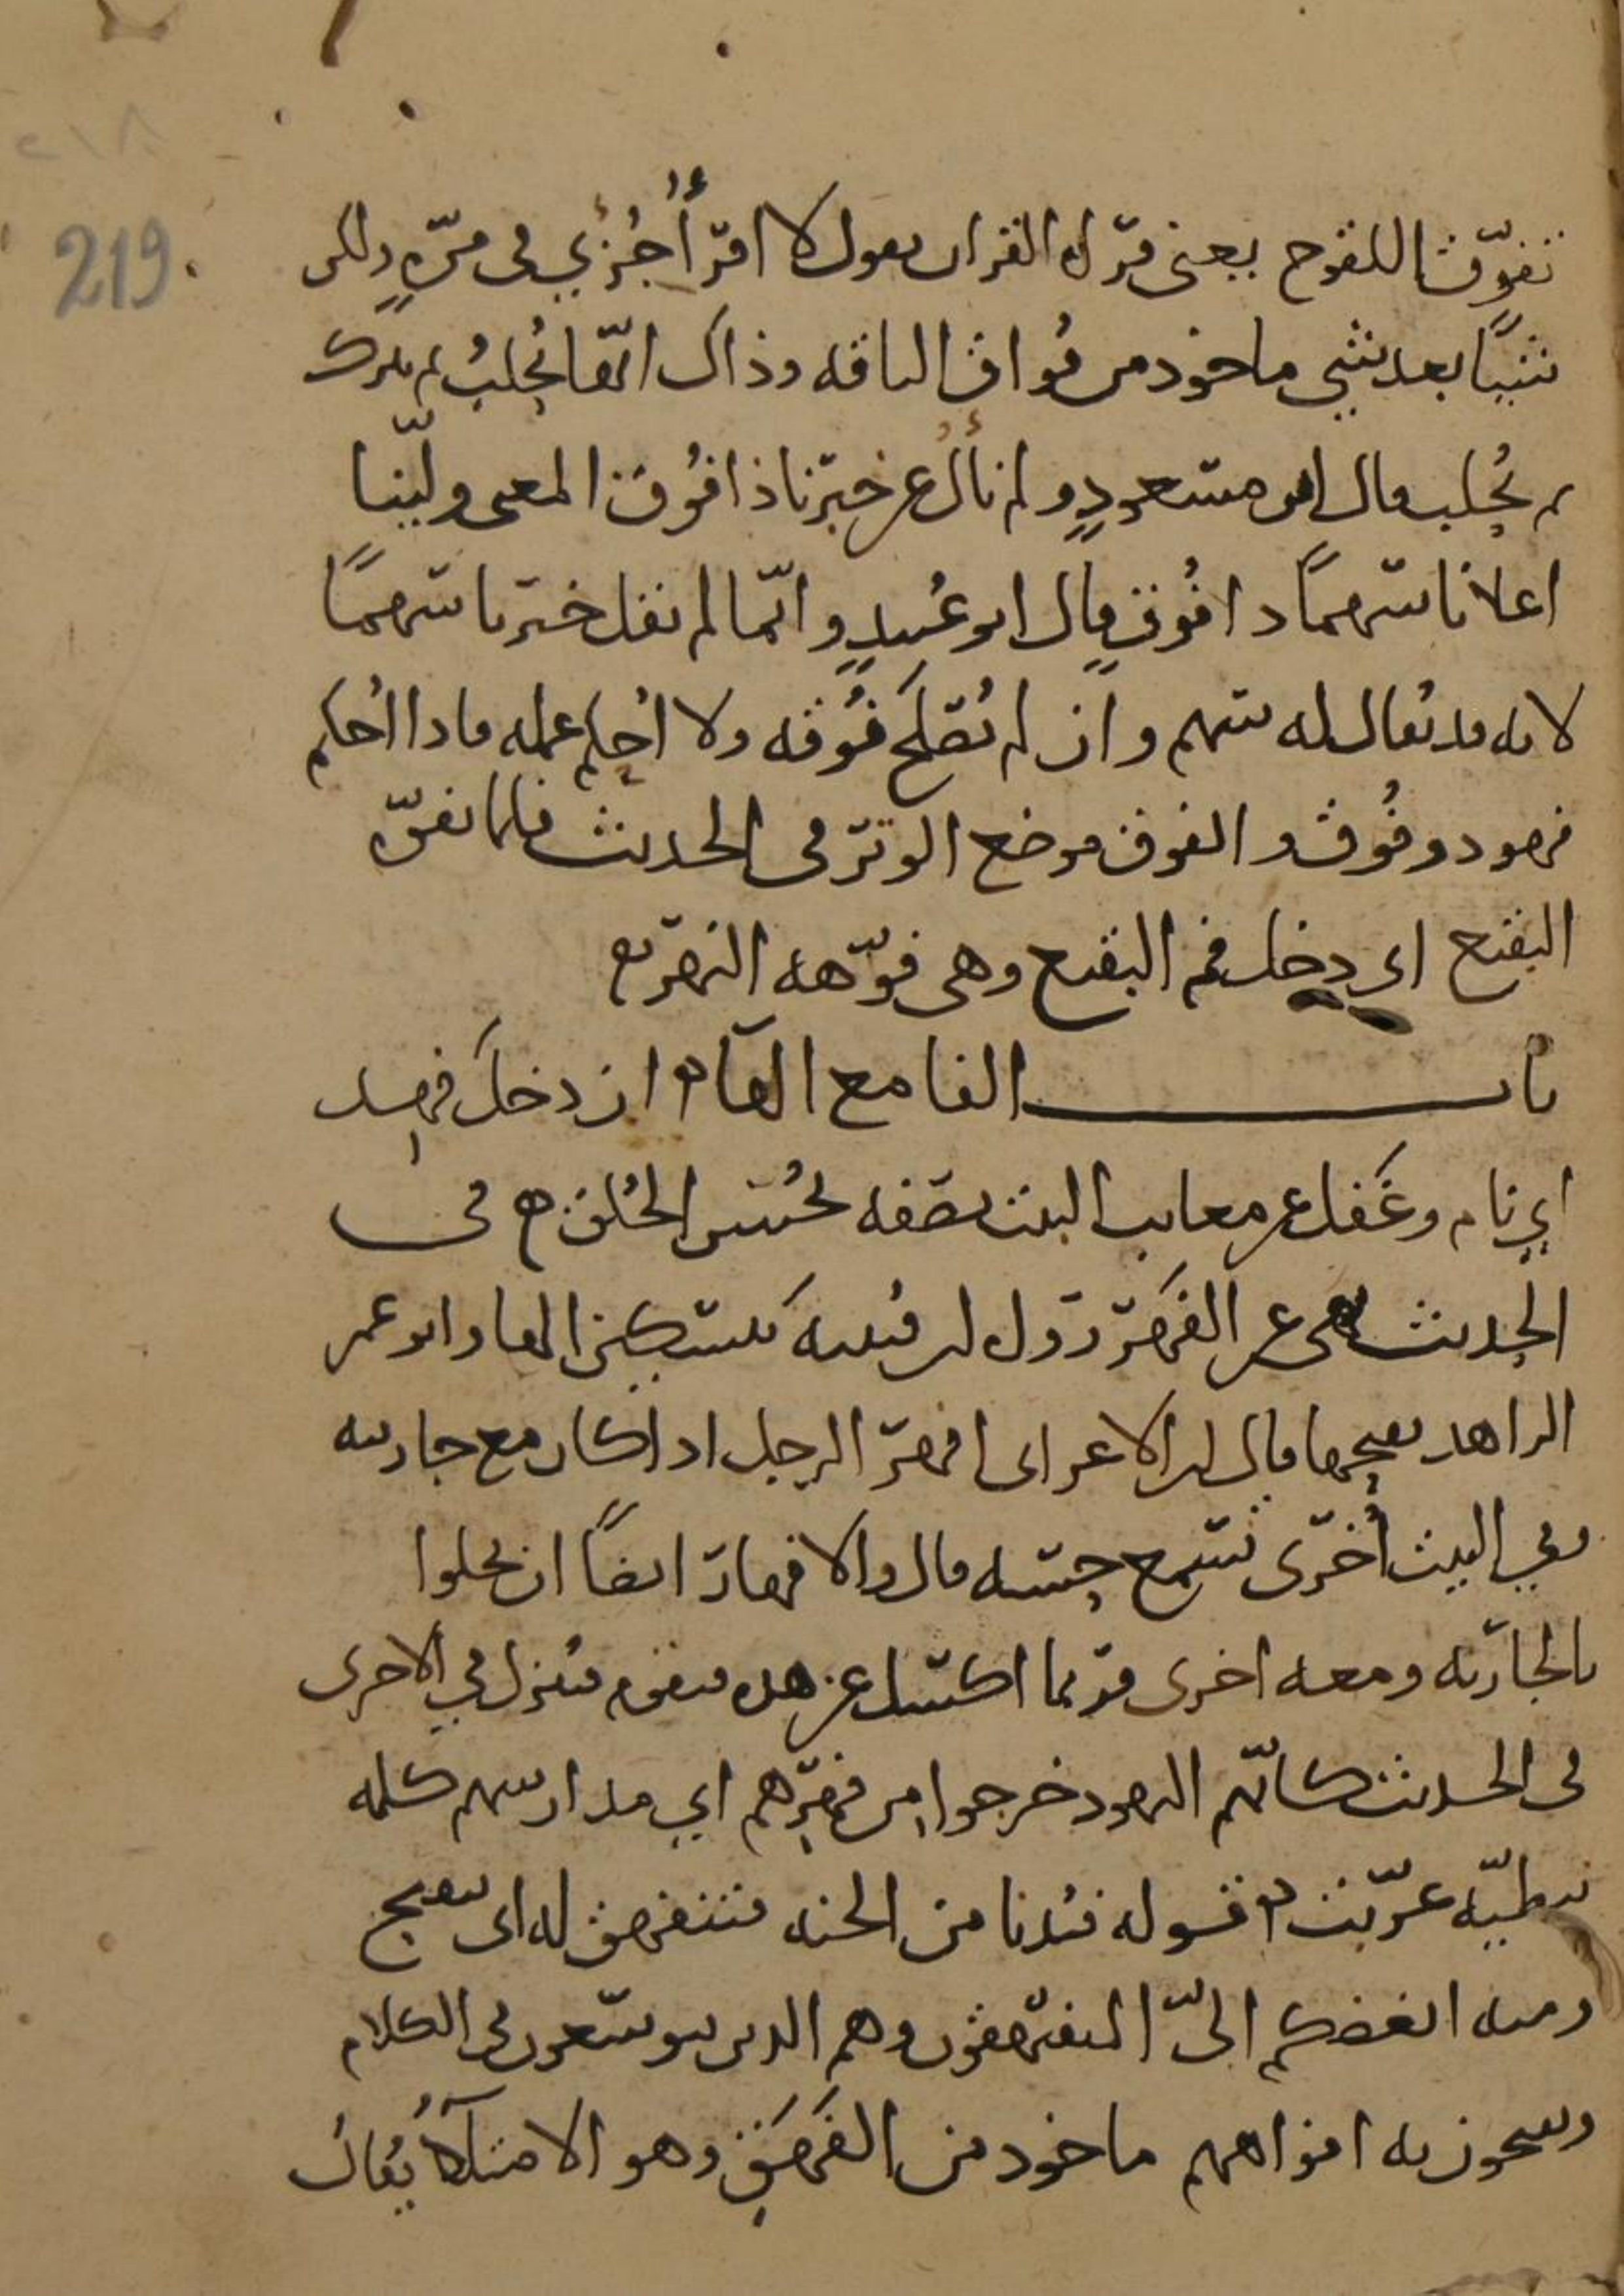 ٢١٨
219
تفوّق اللقوح يعني قراه القران يقول لا اقرأ جُزْئي في مرّةٍ ولكن
شيئًا بعد شيء ماخوذ من فُواق الناقه وذاك انّها تُحلبُ ثم تترك
ثم تُحلب قال ابن مسعودٍ ولم نألُ عن خيرنا ذا فُوق المعنى ولّينا
اعلانا سهمًا ذا فُوقٍ قال ابو عُبيدٍ وانّما لم يقل خيرنا سهمًا
لانه قد يُقال له سهم وان لم يُصلَح فُوقه ولا اُحكم عمله فاذا اُحكم
فهو ذو فُوق والفوق موضع الوتر في الحديث فلما تفوّه
البقيع اي دخل فم البقيع وهي فوّهه النهر
باب الفا مع الها ان دخل فهِد
اي نام وغَفَل عن معايب البيت تصفه بحُسن الخُلق في
الحديث نهى عن الفَهَر رَوَاه ابن قتيبه بتسكين الها وابو عمر
الزاهد بفتحها قال ابن الاعرابي افهرَ الرجل اذا كان مع جاريته
وفي البيت اُخرَى تسمع حِسّه قال والافهار ايضًا ان يخلوا
بالجاريه ومعه اخرى فربما اكسل عن هذه فيقوم فينزل في الاخرى
في الحديث كانّهم اليهود خرجوا من فُهْرِهم اي مدارسهم كلمه
نبطيّه عرّبت قوله فيُدنا من الجنه فتنفهق له اي تنفتح
ومنه ابغضكم اليّ المتفيهقون وهم الذين يتوسّعون في الكلام
ويفتحون به افواههم ماخوذ من الفَهَقِ وهو الامتلآءُ يُقال